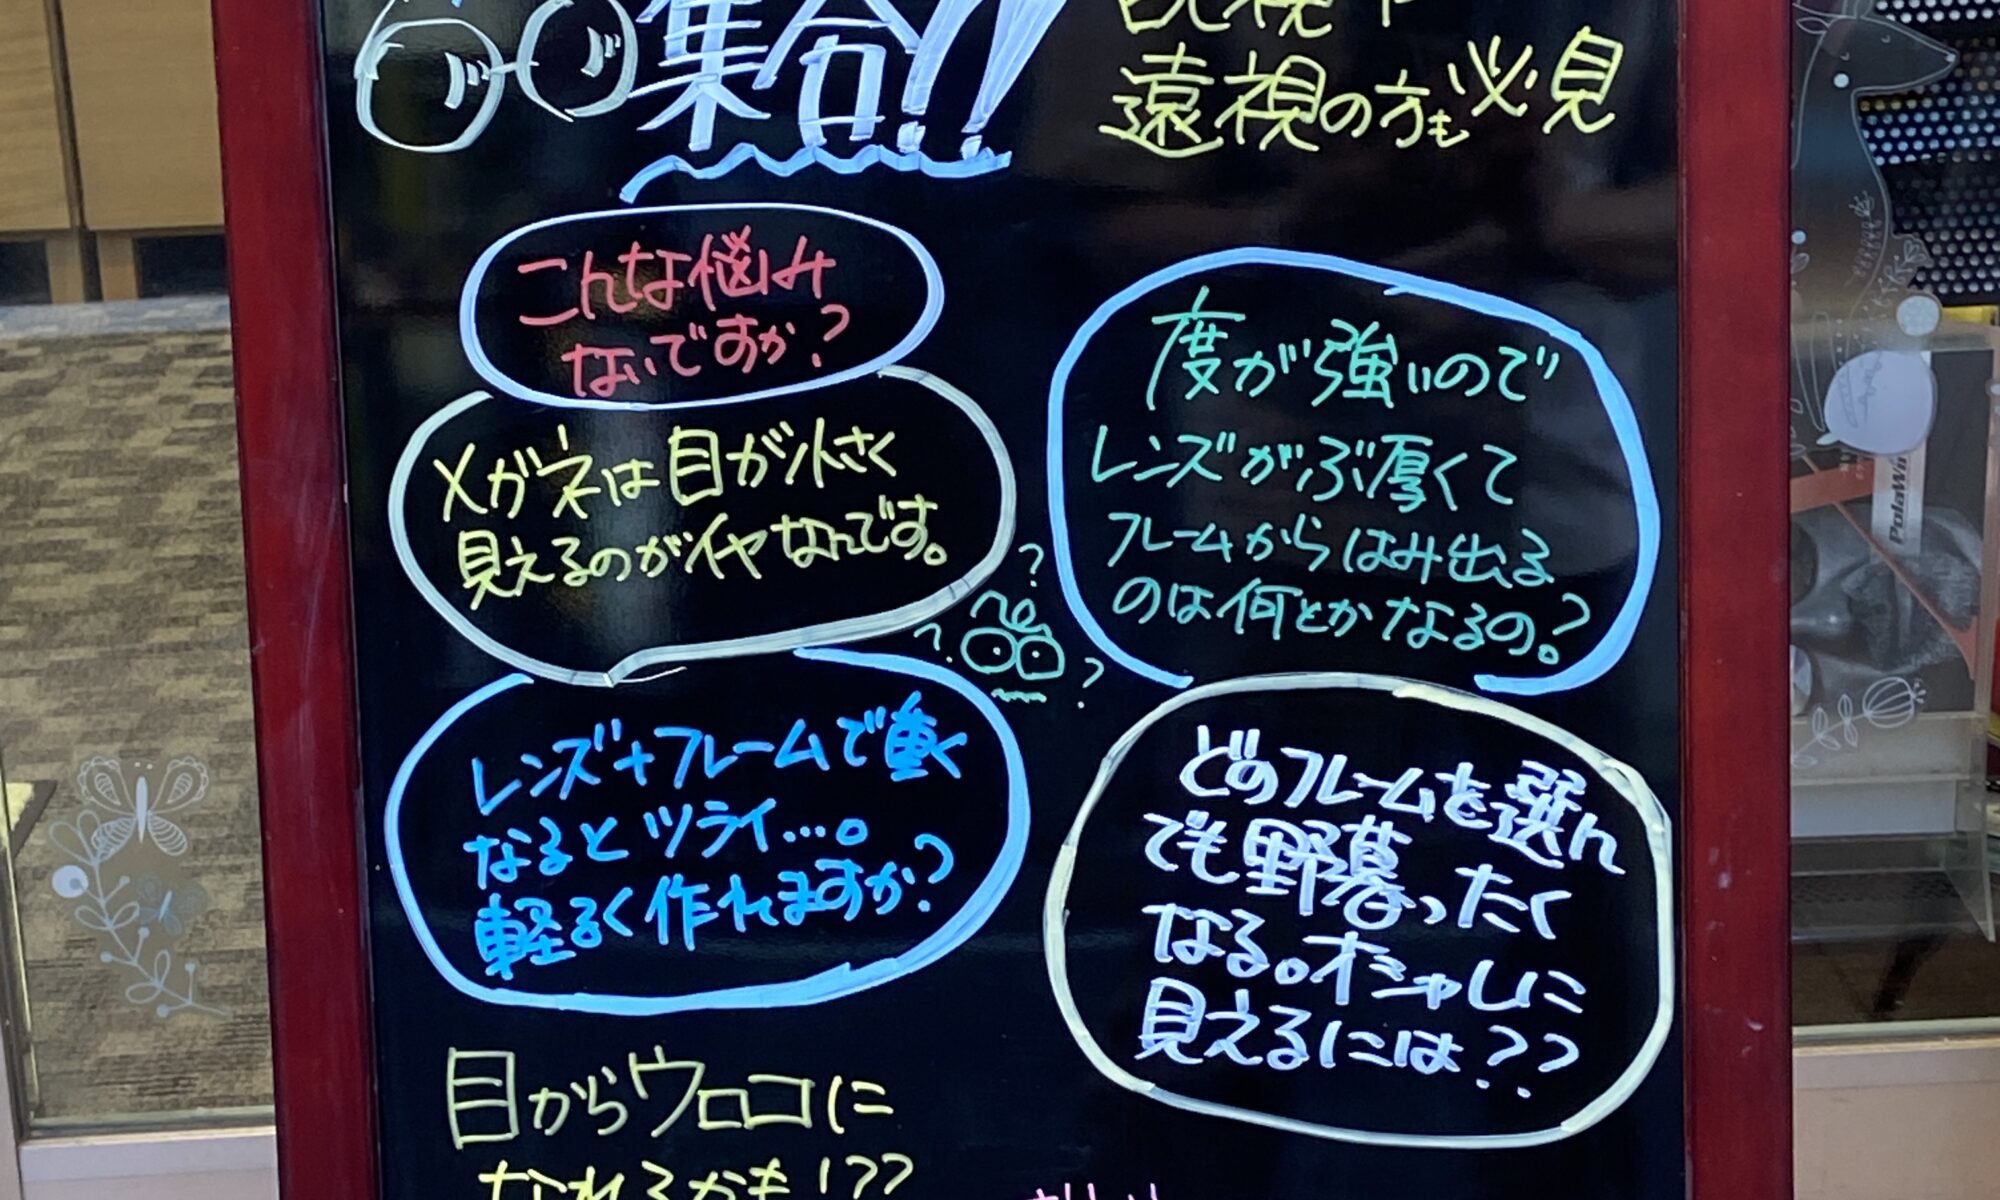 集合!!
乱視や
遠視の方も必見
こんな悩み
ないですか?
メガネは目が小さく
見えるのがイヤなんです。
度が強いので
レンズがぶ厚くて
フレームからはみ出る
のは何とかなるの。?
レンズ+フレームで重く
なるとツライ…。
軽るく作れますか?
どのフレームを選ん
でも野暮ったく
なる。オシャレに
見えるには??
目からウロコに
なれるかも!??
PolaWin